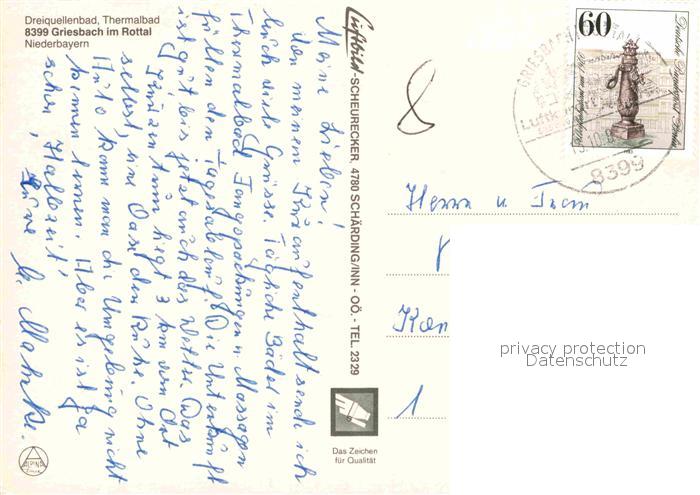 Dreiquellenbad, Thermalbad
8399 Griesbach im Rottal
Niederbayern
Meine Lieben!
Von meinem Kuraufenthalt sende ich
Euch viele Grüsse. Tägliche Bäder im
Thermalbad Fangopackungen u. Massagen
füllen den Tagesablauf. Die Unterkunft
ist gut, bis jetzt auch das Wetter. Das
Kurzentrum liegt 3 km vom Ort
selbst, eine Oase der Ruhe. Ohne
Auto kann man die Umgebung nicht
kennen lernen. Aber es ist ja
schon Halbzeit!
Luftbild-SCHEURECKER, 4780 SCHÄRDING/INN - OÖ. - TEL. 2329
Das Zeichen
für Qualität
ALPINE
8
60
Deutsche Bundespost Berlin
GRIESBACH
Luftk
8399
Herrn u. Frau
1
privacy protection
Datenschutz